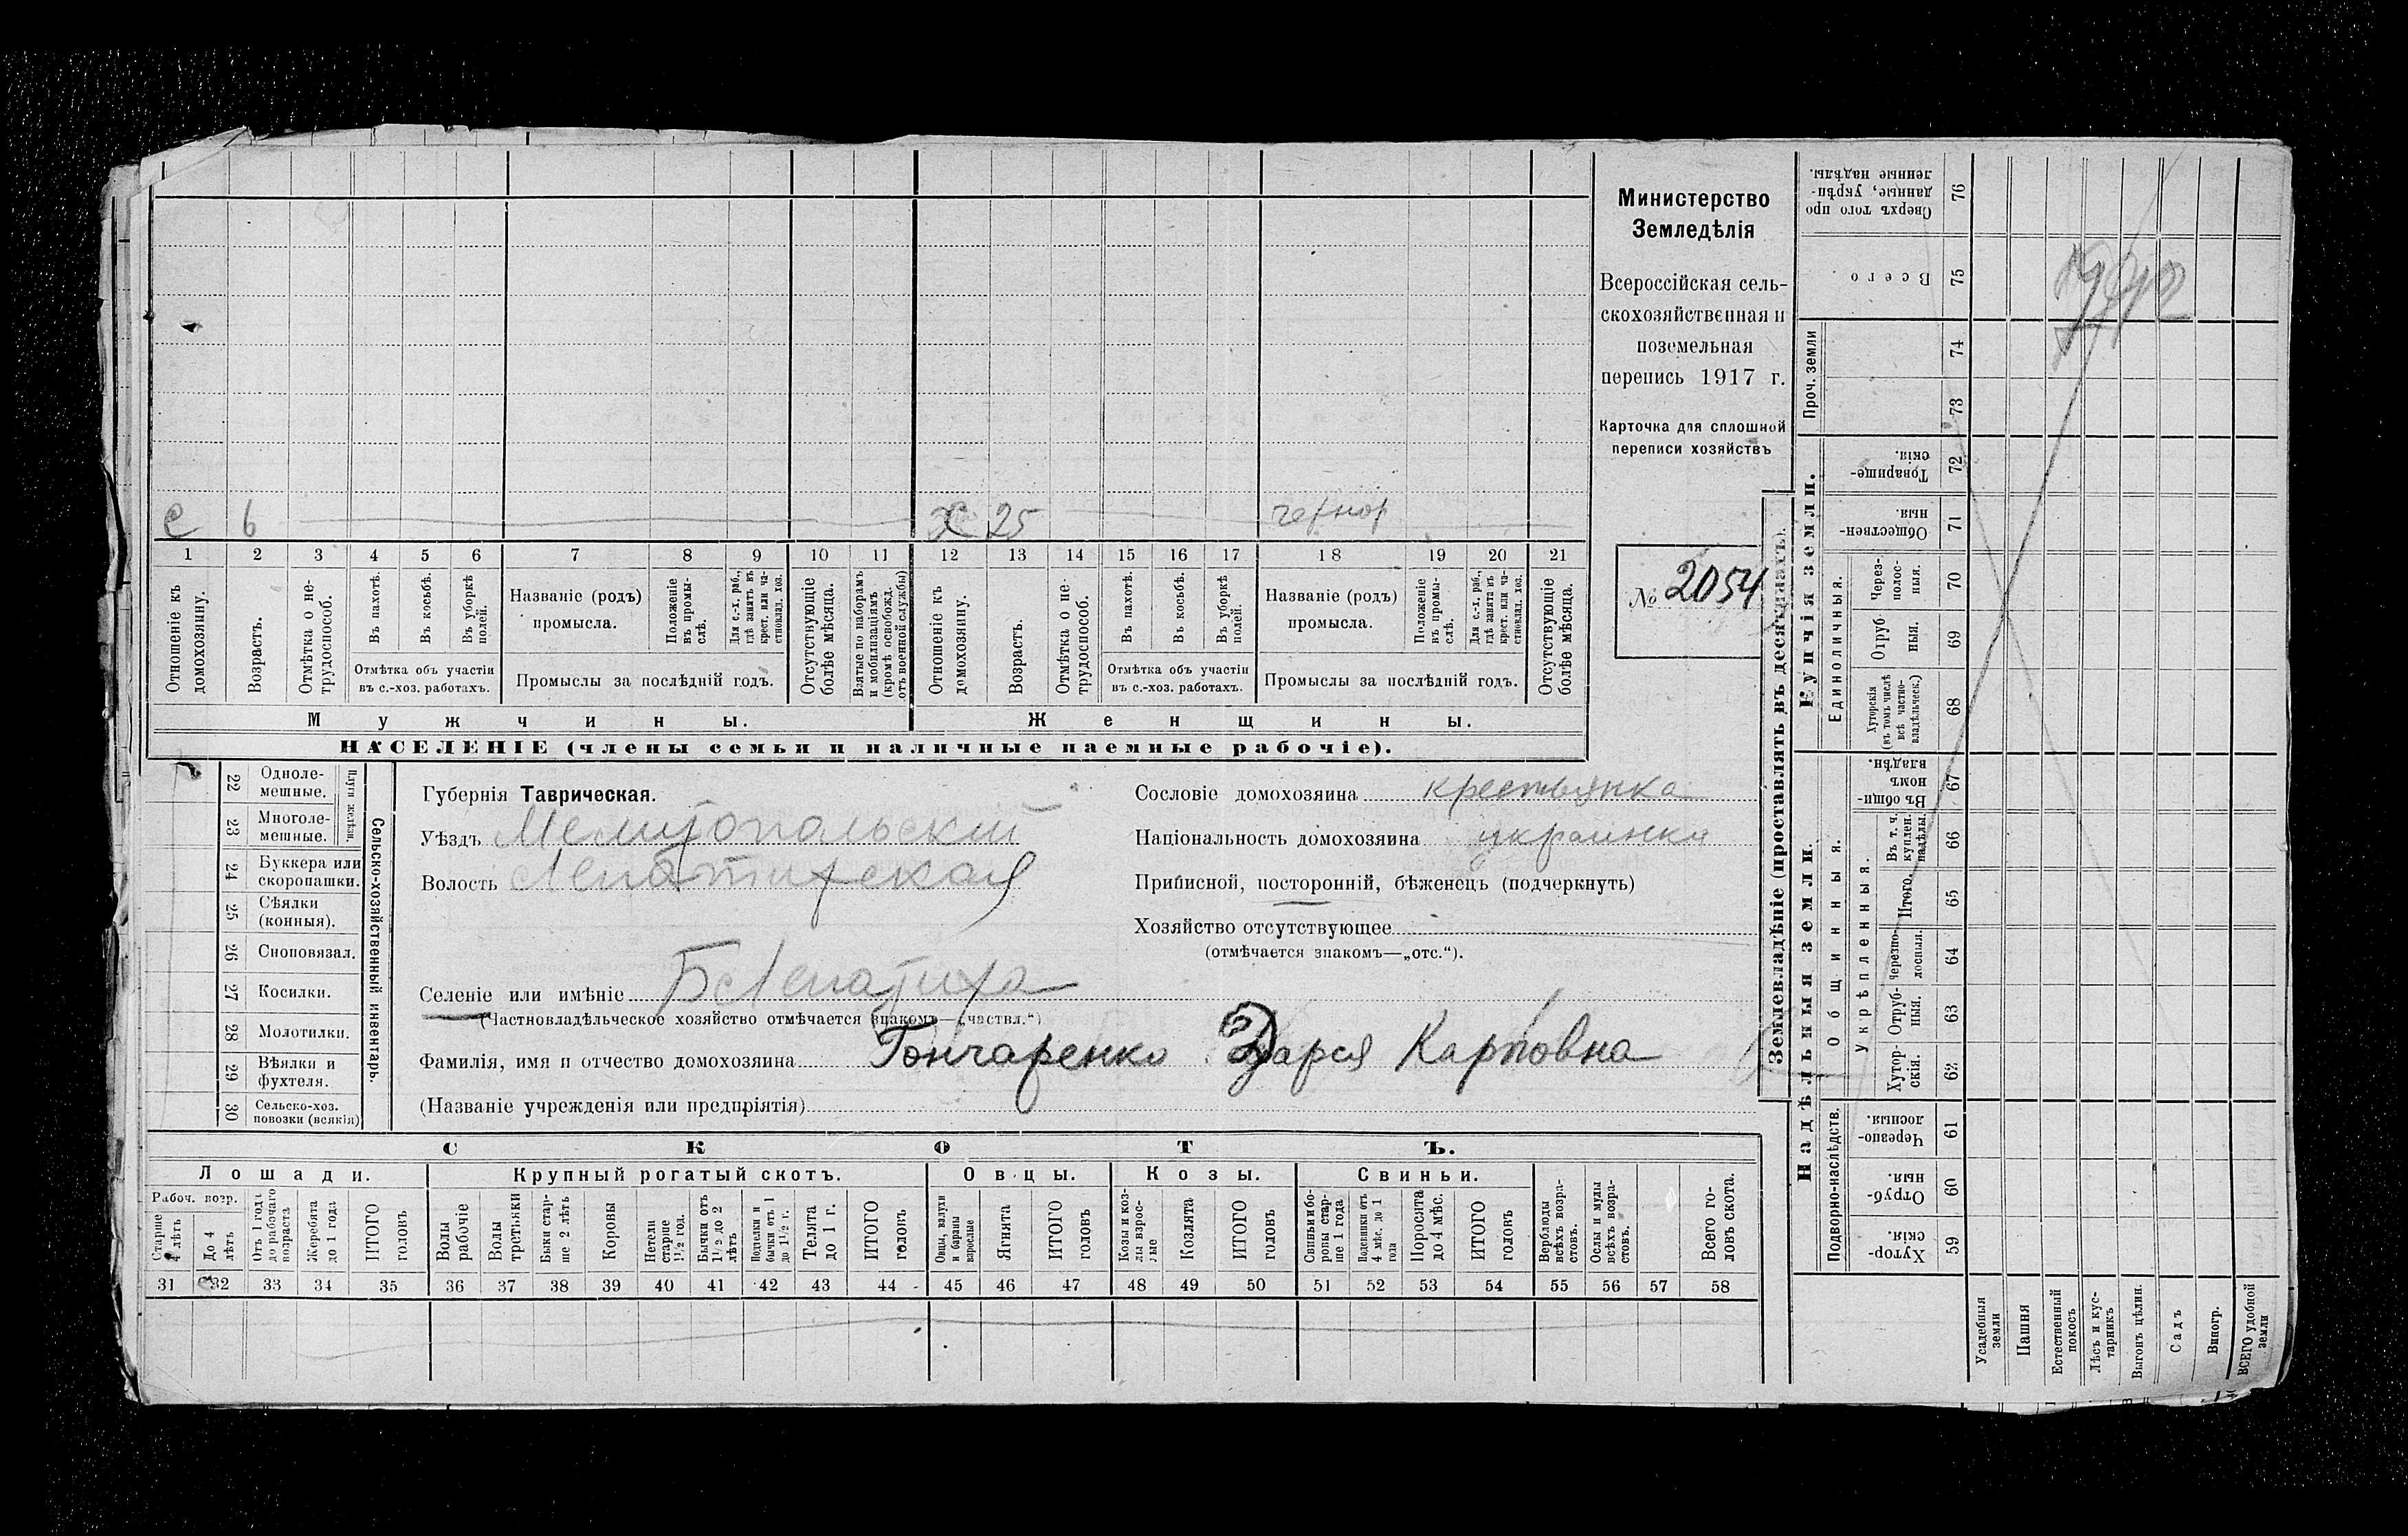 с 6 х 25 чернор
1 2 3 4 5 6 7 8 9 10 11 12 13 14 15 16 17 18 19 20 21
Отношеніе къ домохозяину.
Возрастъ.
Отмѣтка о не-
трудоспособ.
Въ пахотѣ.
Въ косьбѣ.
Въ уборкѣ
полей.
Отмѣтка объ участіи
въ с.-хоз. работахъ.
Названіе (родъ)
промысла.
Положеніе
въ промы-
слѣ.
Для с.-х. раб.,
гдѣ занятъ въ
крест. или ча-
стновлад. хоз.
Промыслы за послѣдній годъ.
Отсутствующіе
болѣе мѣсяца.
Взятые по наборамъ
и мобилизаціямъ
(кромѣ освобожд.
отъ военной службы)
Отношеніе къ
домохозяину.
Возрастъ.
Отмѣтка о не-
трудоспособ.
Въ пахотѣ.
Въ косьбѣ.
Въ уборкѣ
полей.
Отмѣтка объ участіи
въ с.-хоз. работахъ.
Названіе (родъ)
промысла.
Положеніе
въ промы-
слѣ.
Для с.-х. раб.,
гдѣ занята въ
крест. или ча-
стновлад. хоз.
Промыслы за послѣдній годъ.
Отсутствующіе
болѣе мѣсяца.
Мужчины.
Женщины.
НАСЕЛЕНІЕ (члены семьи и наличные наемные рабочіе).
Министерство
Земледѣлія
Всероссійская сель-
скохозяйственная и
поземельная
перепись 1917 г.
Карточка для сплошной
переписи хозяйствъ
№ 2054
22 Одноле-
мешные.
23 Многоле-
мешные.
Плуги желѣзн.
24 Буккера или
скоропашки.
25 Сѣялки
(конныя).
26 Сноповязал.
27 Косилки.
28 Молотилки.
29 Вѣялки и
фухтеля.
30 Сельско-хоз.
повозки (всякія)
Сельско-хозяйственный инвентарь.
Губернія Таврическая.
Уѣздъ Мелитопольскій
Волость Лепатихская
Сословіе домохозяина крестьянка
Національность домохозяина украинка
Приписной, посторонній, бѣженецъ (подчеркнуть)
Хозяйство отсутствующее
(отмѣчается знакомъ—„отс.“).
Селеніе или имѣніе Б Лепатиха
(Частновладѣльческое хозяйство отмѣчается знакомъ—„частвл.“)
Фамилія, имя и отчество домохозяина Гончаренко Дарья Карповна
(Названіе учрежденія или предпріятія)
СКОТЪ.
Лошади.
Крупный рогатый скотъ.
Овцы.
Козы.
Свиньи.
Рабоч. возр.
Старше
4 лѣтъ
До 4
лѣтъ
Отъ 1 года
до рабочаго
возраста
Жеребята
до 1 года
ИТОГО
головъ
Волы
рабочіе
Волы
третьяки
Быки стар-
ше 2 лѣтъ
Коровы
Нетели
старше
1½ год.
Бычки отъ
1½ до 2
лѣтъ
Подтелки и
бычки отъ 1
до 1½ г.
Телята
до 1 г.
ИТОГО
головъ
Овцы, валухи
и бараны
взрослые
Ягнята
ИТОГО
головъ
Козы и коз-
лы взрос-
лые
Козлята
ИТОГО
головъ
Свиньи и бо-
ровы стар-
ше 1 года
Подсвинки отъ
4 мѣс. до 1
года
Поросята
до 4 мѣс.
ИТОГО
головъ
Верблюды
всѣхъ возра-
стовъ.
Ослы и мулы
всѣхъ возра-
стовъ.
Всего го-
ловъ скота.
31 32 33 34 35 36 37 38 39 40 41 42 43 44 45 46 47 48 49 50 51 52 53 54 55 56 57 58
Землевладѣніе (проставлять въ десятинахъ).
Надѣльныя земли.
Купчія земли.
Проч. земли
Подворно-наслѣдств.
Общинныя.
Укрѣпленныя.
Единоличныя.
Сверхъ того про
данные, укрѣп-
ленные надѣлы.
76
Всего
75
74
73
Товарище-
скія.
72
Обществен-
ныя.
71
Через-
полос-
ныя.
70
Отруб-
ныя.
69
Хуторскія
(въ томъ числѣ
всѣ частно-
владѣльческ.)
68
Въ общин-
номъ
владѣн.
67
Въ т. ч.
куплен.
надѣлы.
66
Итого.
65
Черезпо-
лосныя.
64
Отруб-
ныя.
63
Хутор-
скія.
62
Черезпо-
лосныя.
61
Отруб-
ныя.
60
Хутор-
скія.
59
Усадебныя
земли
Пашня
Естественный
покосъ
Лѣсъ и кус-
тарникъ
Выгонъ цѣлин.
Садъ
Виногр.
ВСЕГО удобной
земли